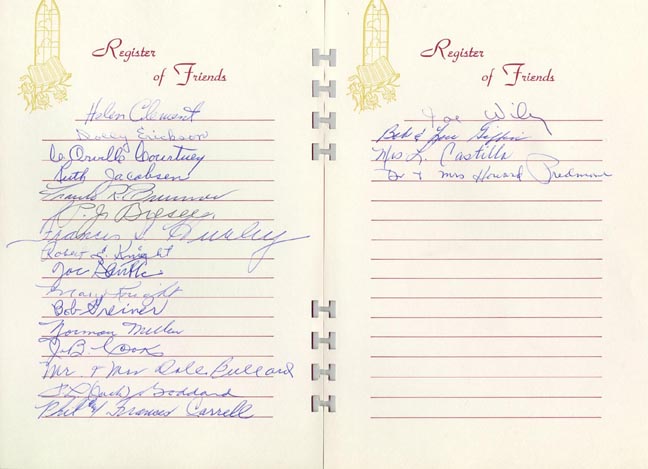 Register
of Friends
Helen Clement
Dolly Erickson
Orville Courtney
Ruth Jacobsen
Frank R. Brunner
P. J. Bresee
Francis S.
Robert L. Knight
Joe
Mary Knight
Bob Greiner
Norman Miller
J. B. Cook
Mr. & Mrs Dale Bullard
(Jack) Goddard
Phil & Frances Carrell
Register
of Friends
Joe Wiley
Bob &
Mrs L. Castillo
Dr & Mrs Howard Predmore